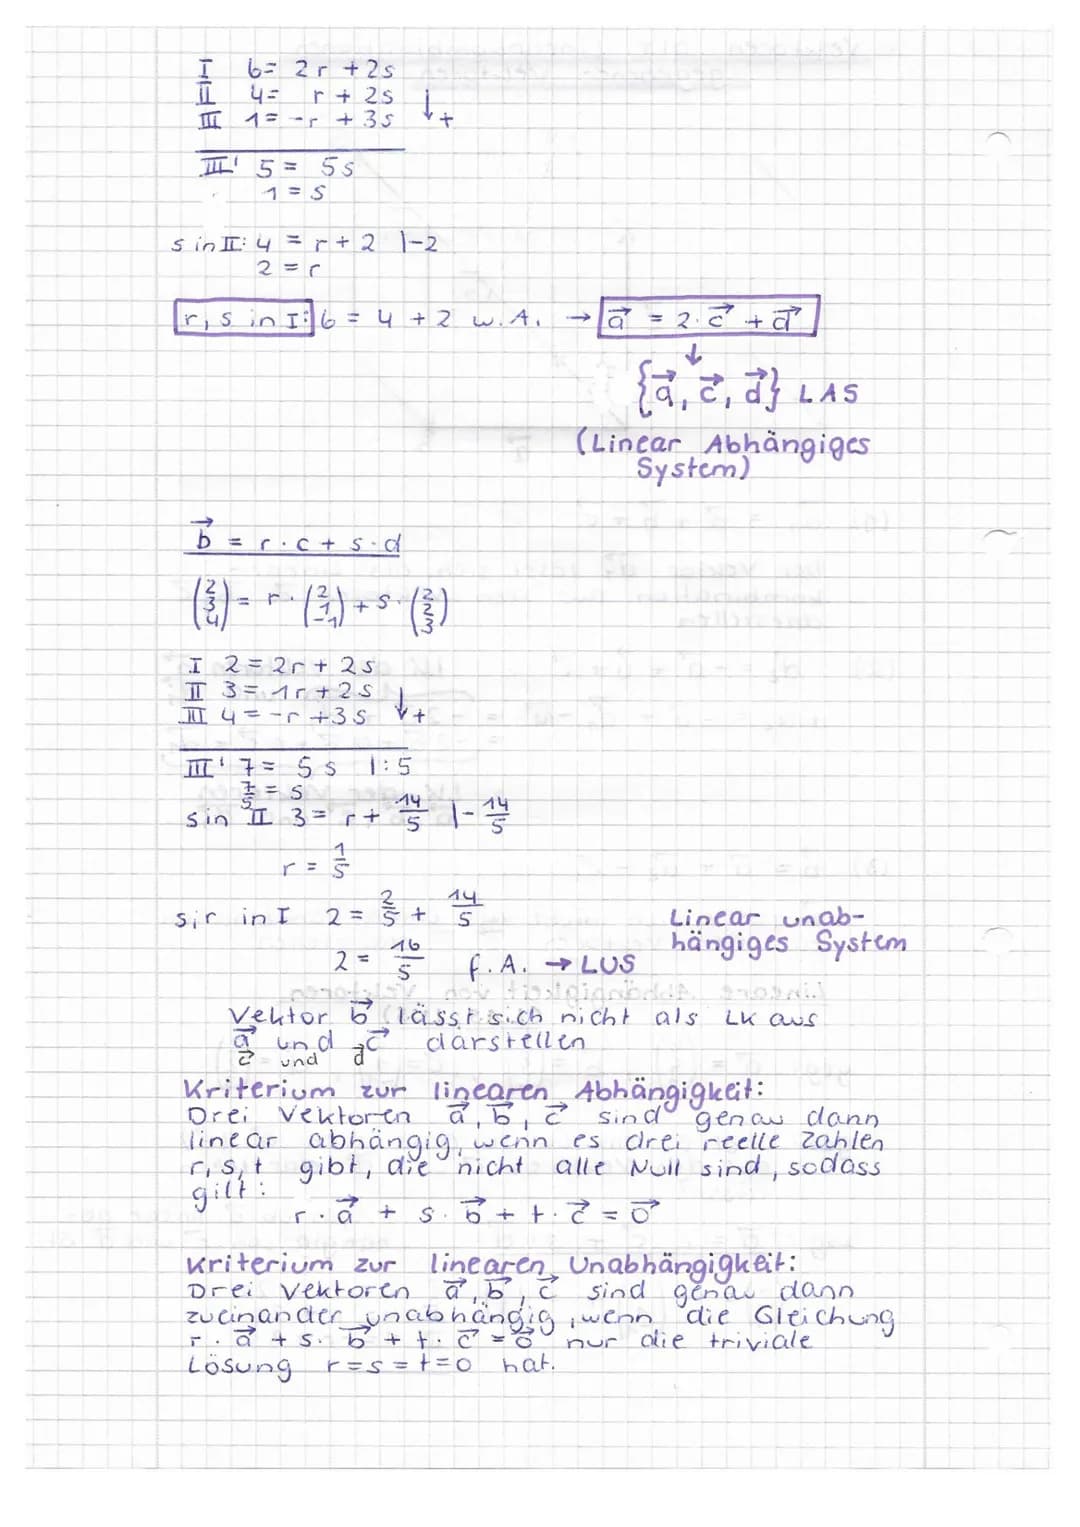 I 6 = 2r + 2s
II 4 = r + 2s
III 1 = -r + 3s ↓+
III' 5 = 5s
1 = s
s in II: 4 = r + 2 |-2
2 = r
r, s in I: 6 = 4 + 2 w.A. → a⃗ = 2·c⃗ + d⃗
↓
{a⃗, c⃗, d⃗} LAS
(Linear Abhängiges
System)
b⃗ = r·c + s·d
(2 3 4) = r·(2 1 -1) + s·(2 2 3)
I 2 = 2r + 2s
II 3 = 1r + 2s
III 4 = -r + 3s ↓+
III' 7 = 5s |:5
7/5 = s
s in II 3 = r + 14/5 |- 14/5
r = 1/5
s,r in I 2 = 2/5 + 14/5
2 = 16/5 f.A. → LUS
Linear unab-
hängiges System
Vektor b⃗ lässt sich nicht als LK aus
a⃗ und c⃗ darstellen
c⃗ und d⃗
Kriterium zur linearen Abhängigkeit:
Drei Vektoren a⃗, b⃗, c⃗ sind genau dann
linear abhängig, wenn es drei reelle Zahlen
r, s, t gibt, die nicht alle Null sind, sodass
gilt:
r·a⃗ + s·b⃗ + t·c⃗ = o⃗
Kriterium zur linearen Unabhängigkeit:
Drei Vektoren a⃗, b⃗, c⃗ sind genau dann
zueinander unabhängig, wenn die Gleichung
r·a⃗ + s·b⃗ + t·c⃗ = o⃗ nur die triviale
Lösung r=s=t=0 hat.